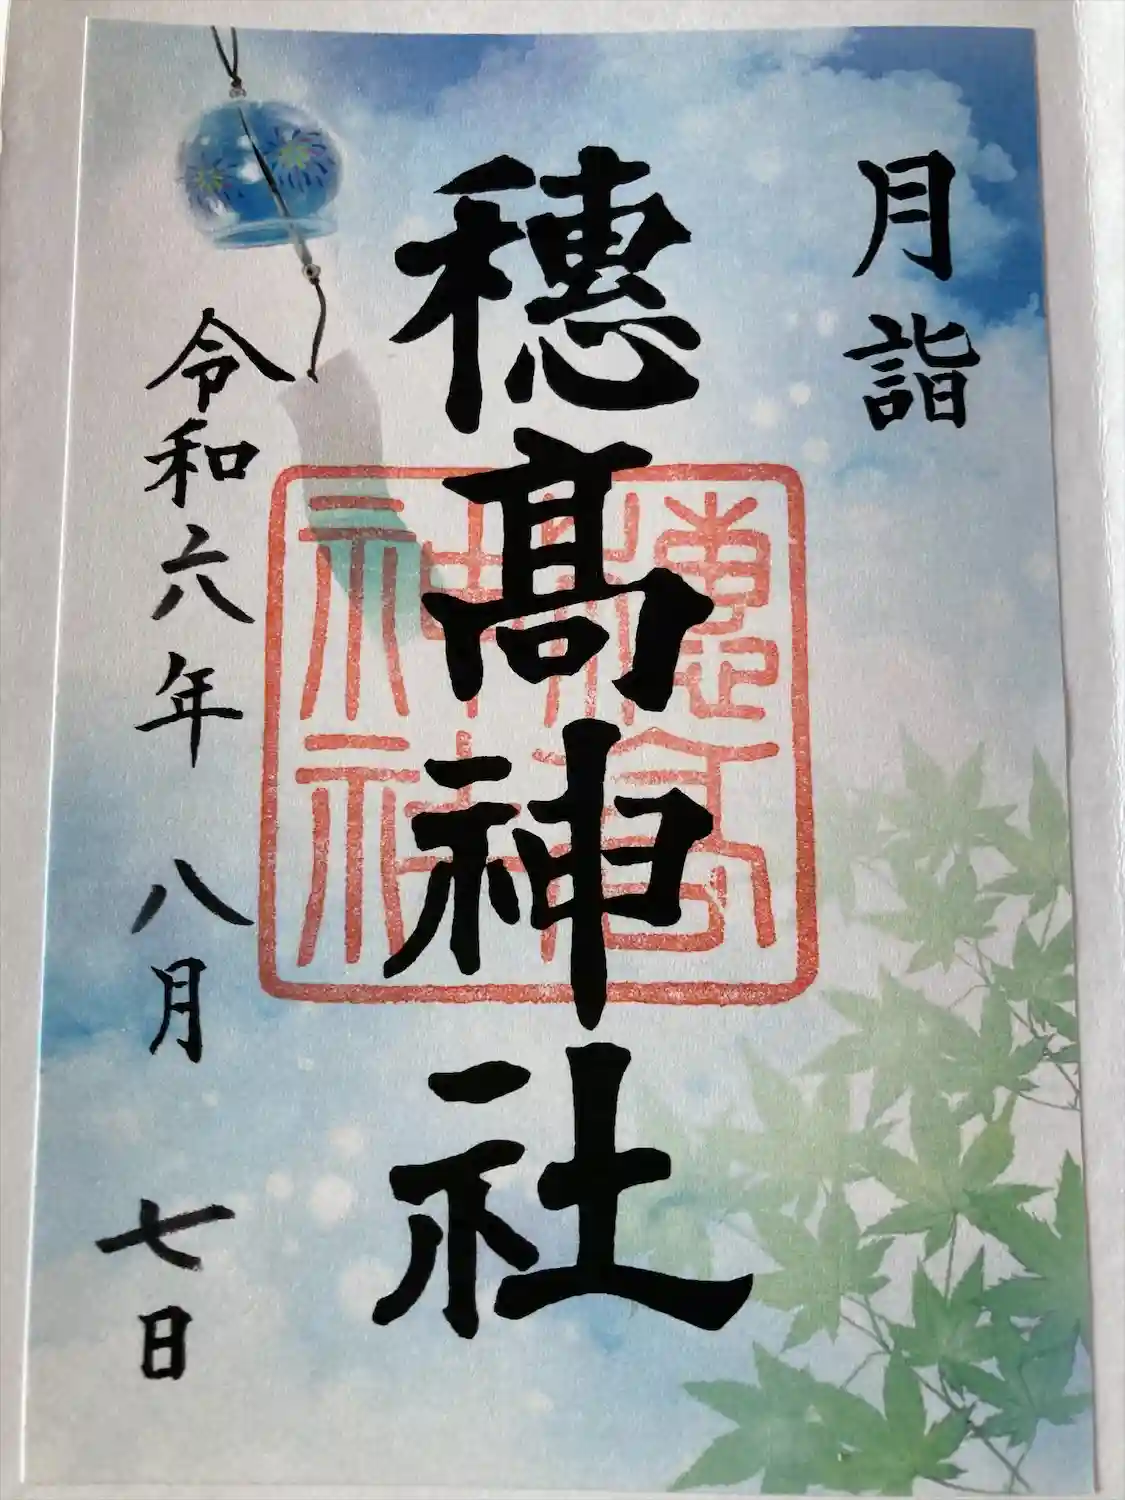 月詣
穗髙神社
穗髙
神社
令和六年 八月 七日